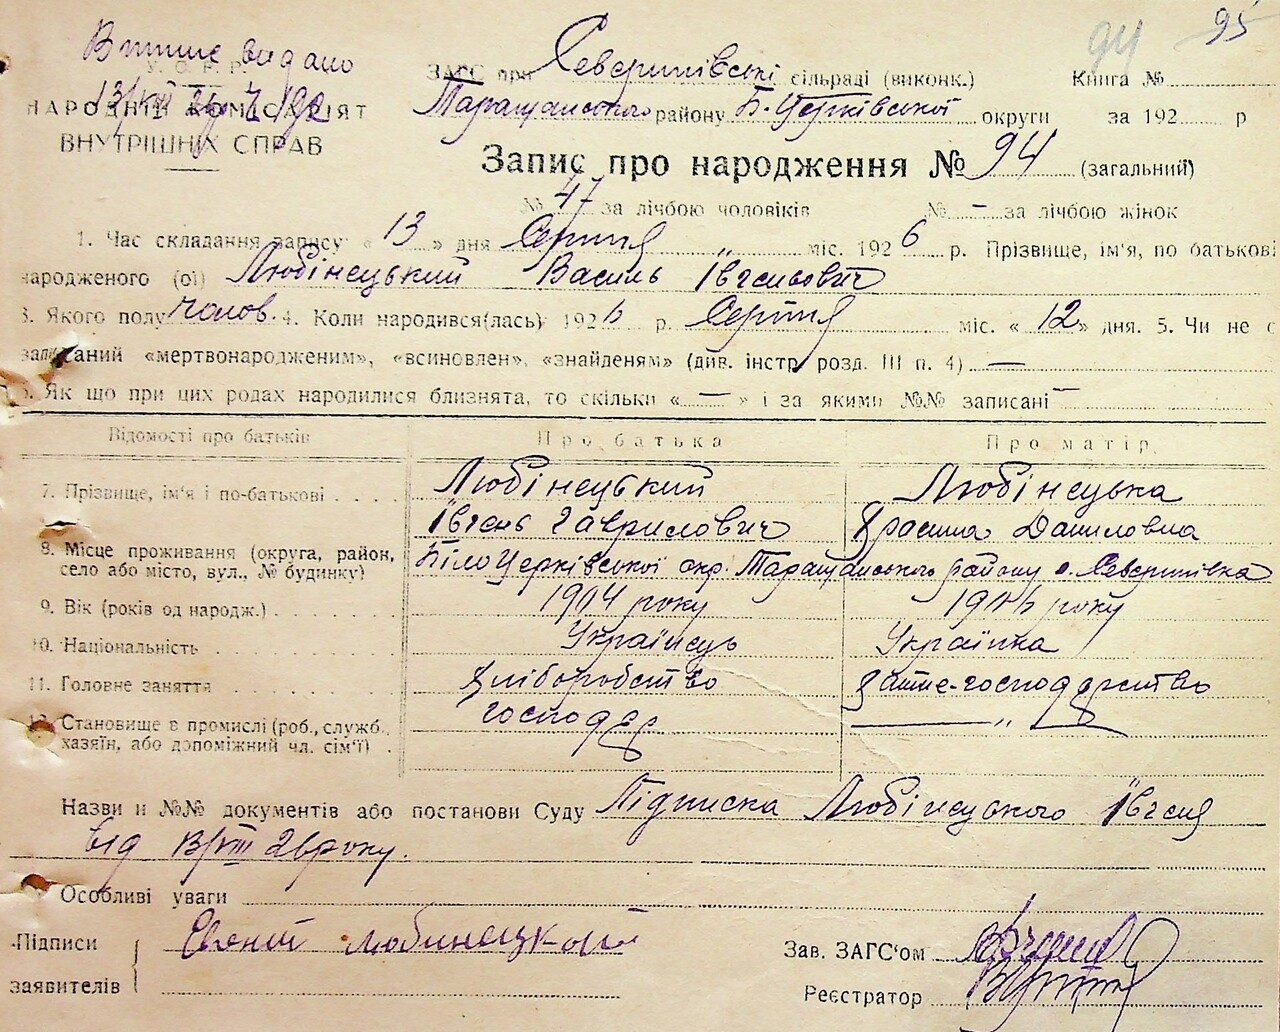 94 95
Витяг видано
У. С. Р. Р.
13/VIII 26 р. № 192
НАРОДНІЙ КОМІСАРІЯТ
ВНУТРІШНІХ СПРАВ
ЗАГС при Северинівські сільраді (виконк.) Книга №
Таращанського району Б. Церківської округи за 192 р
Запис про народження № 94 (загальний)
№ 47 за лічбою чоловіків № — за лічбою жінок
1. Час складання запису: «13» дня Серпня міс. 1926 р. Прізвище, ім'я, по батькові
народженого (ої) Любінецький Василь Івгеньович
3. Якого полу чолов. 4. Коли народився(лась) 1926 р. Серпня міс. «12» дня. 5. Чи не є
записаний «мертвонародженим», «всиновлен», «знайденям» (див. інстр. розд. III п. 4) —
6. Як що при цих родах народилися близнята, то скільки « — » і за якими №№ записані —
Відомості про батьків Про батька Про матір
7. Прізвище, ім'я і по-батькові Любінецький Любінецька
Івгень Гаврилович Даниловна
8. Місце проживання (округа, район, село або місто, вул., № будинку) БілоЦерківської окр. Таращанського району с. Северинівка
9. Вік (років од народж.) 1904 року 1906 року
10. Національність Українець Українка
11. Головне заняття Хліборобство хатнє-господарство
12. Становище в промислі (роб., служб., хазяїн, або допоміжний чл. сім'ї) господар — " —
Назви и №№ документів або постанови Суду Підписка Любінецького Івгенія
від 13/VIII 26 року.
Особливі уваги
Підписи заявителів Евгений Любинецкий
Зав. ЗАГС'ом
Реєстратор